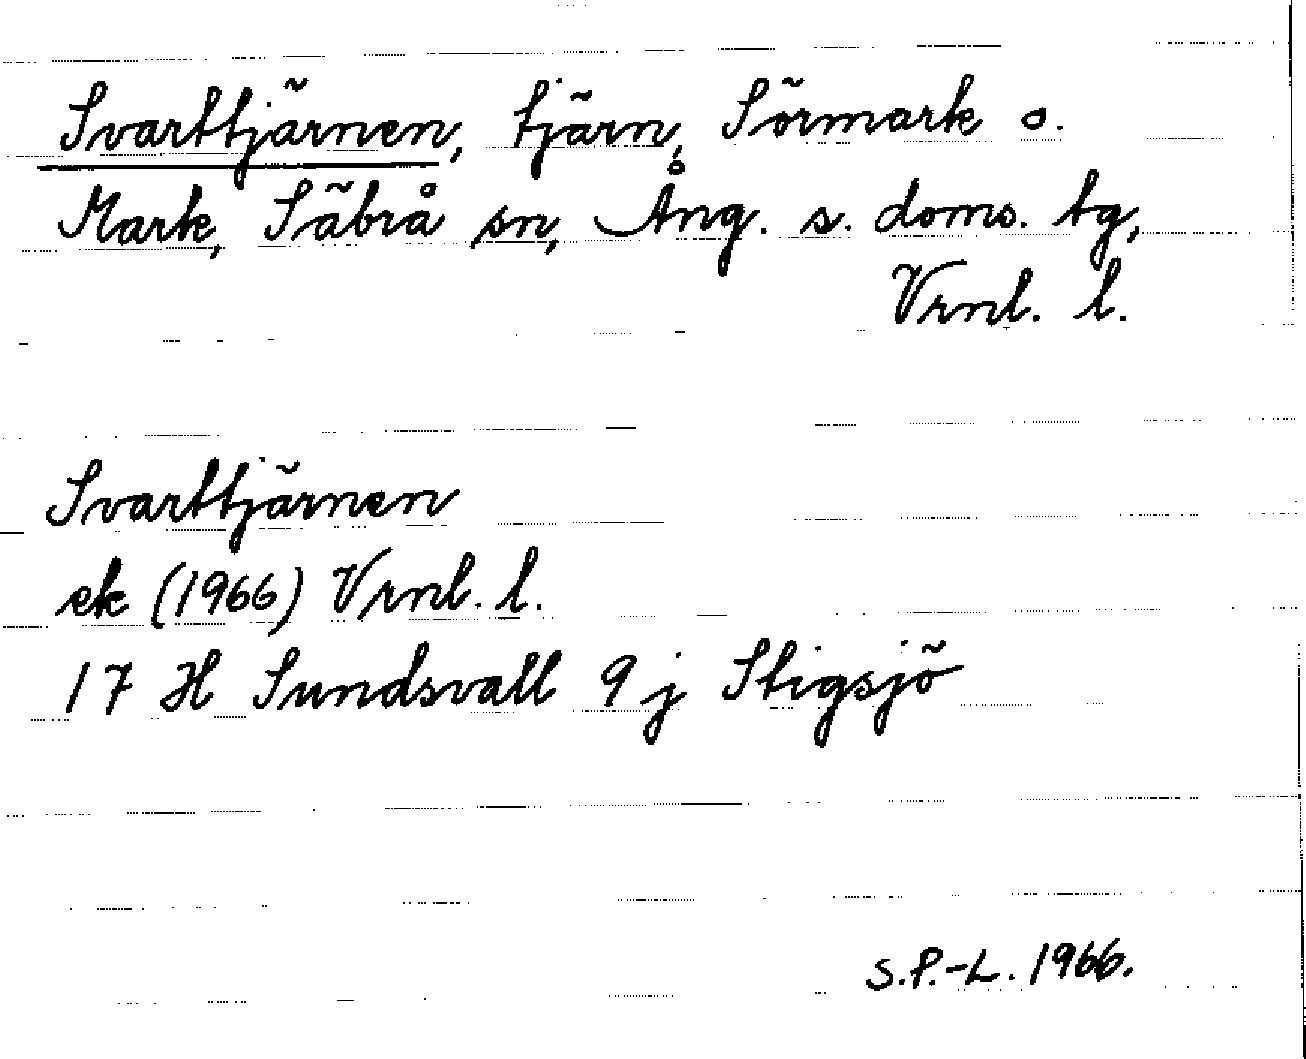 Svarttjärnen, tjärn, Sörmark o.
Mark, Säbrå sn, Ång. s. doms. tg,
Vrnl. l.
Svarttjärnen
ek (1966) Vrnl. l.
17 H Sundsvall 9 j Stigsjö
S.P.-L. 1966.